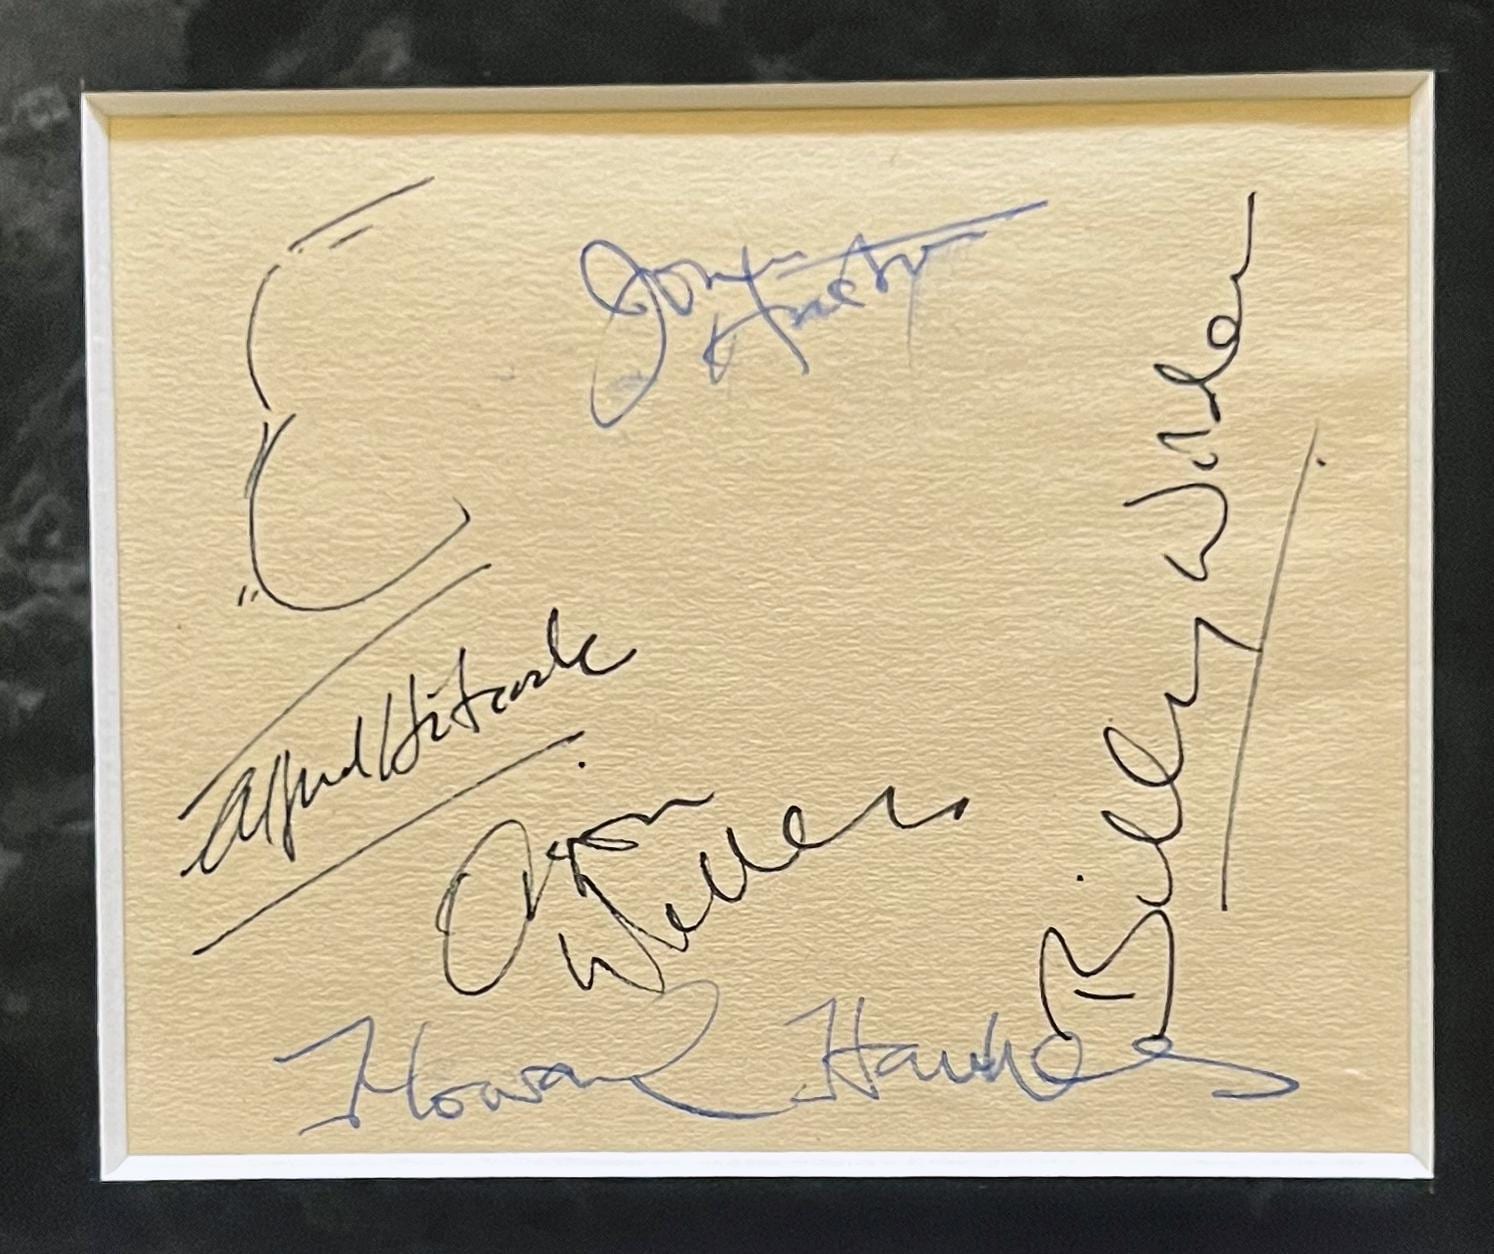 John
Huston
Alfred Hitchcock
Orson
Welles
Billy Wilder
Howard Hawks